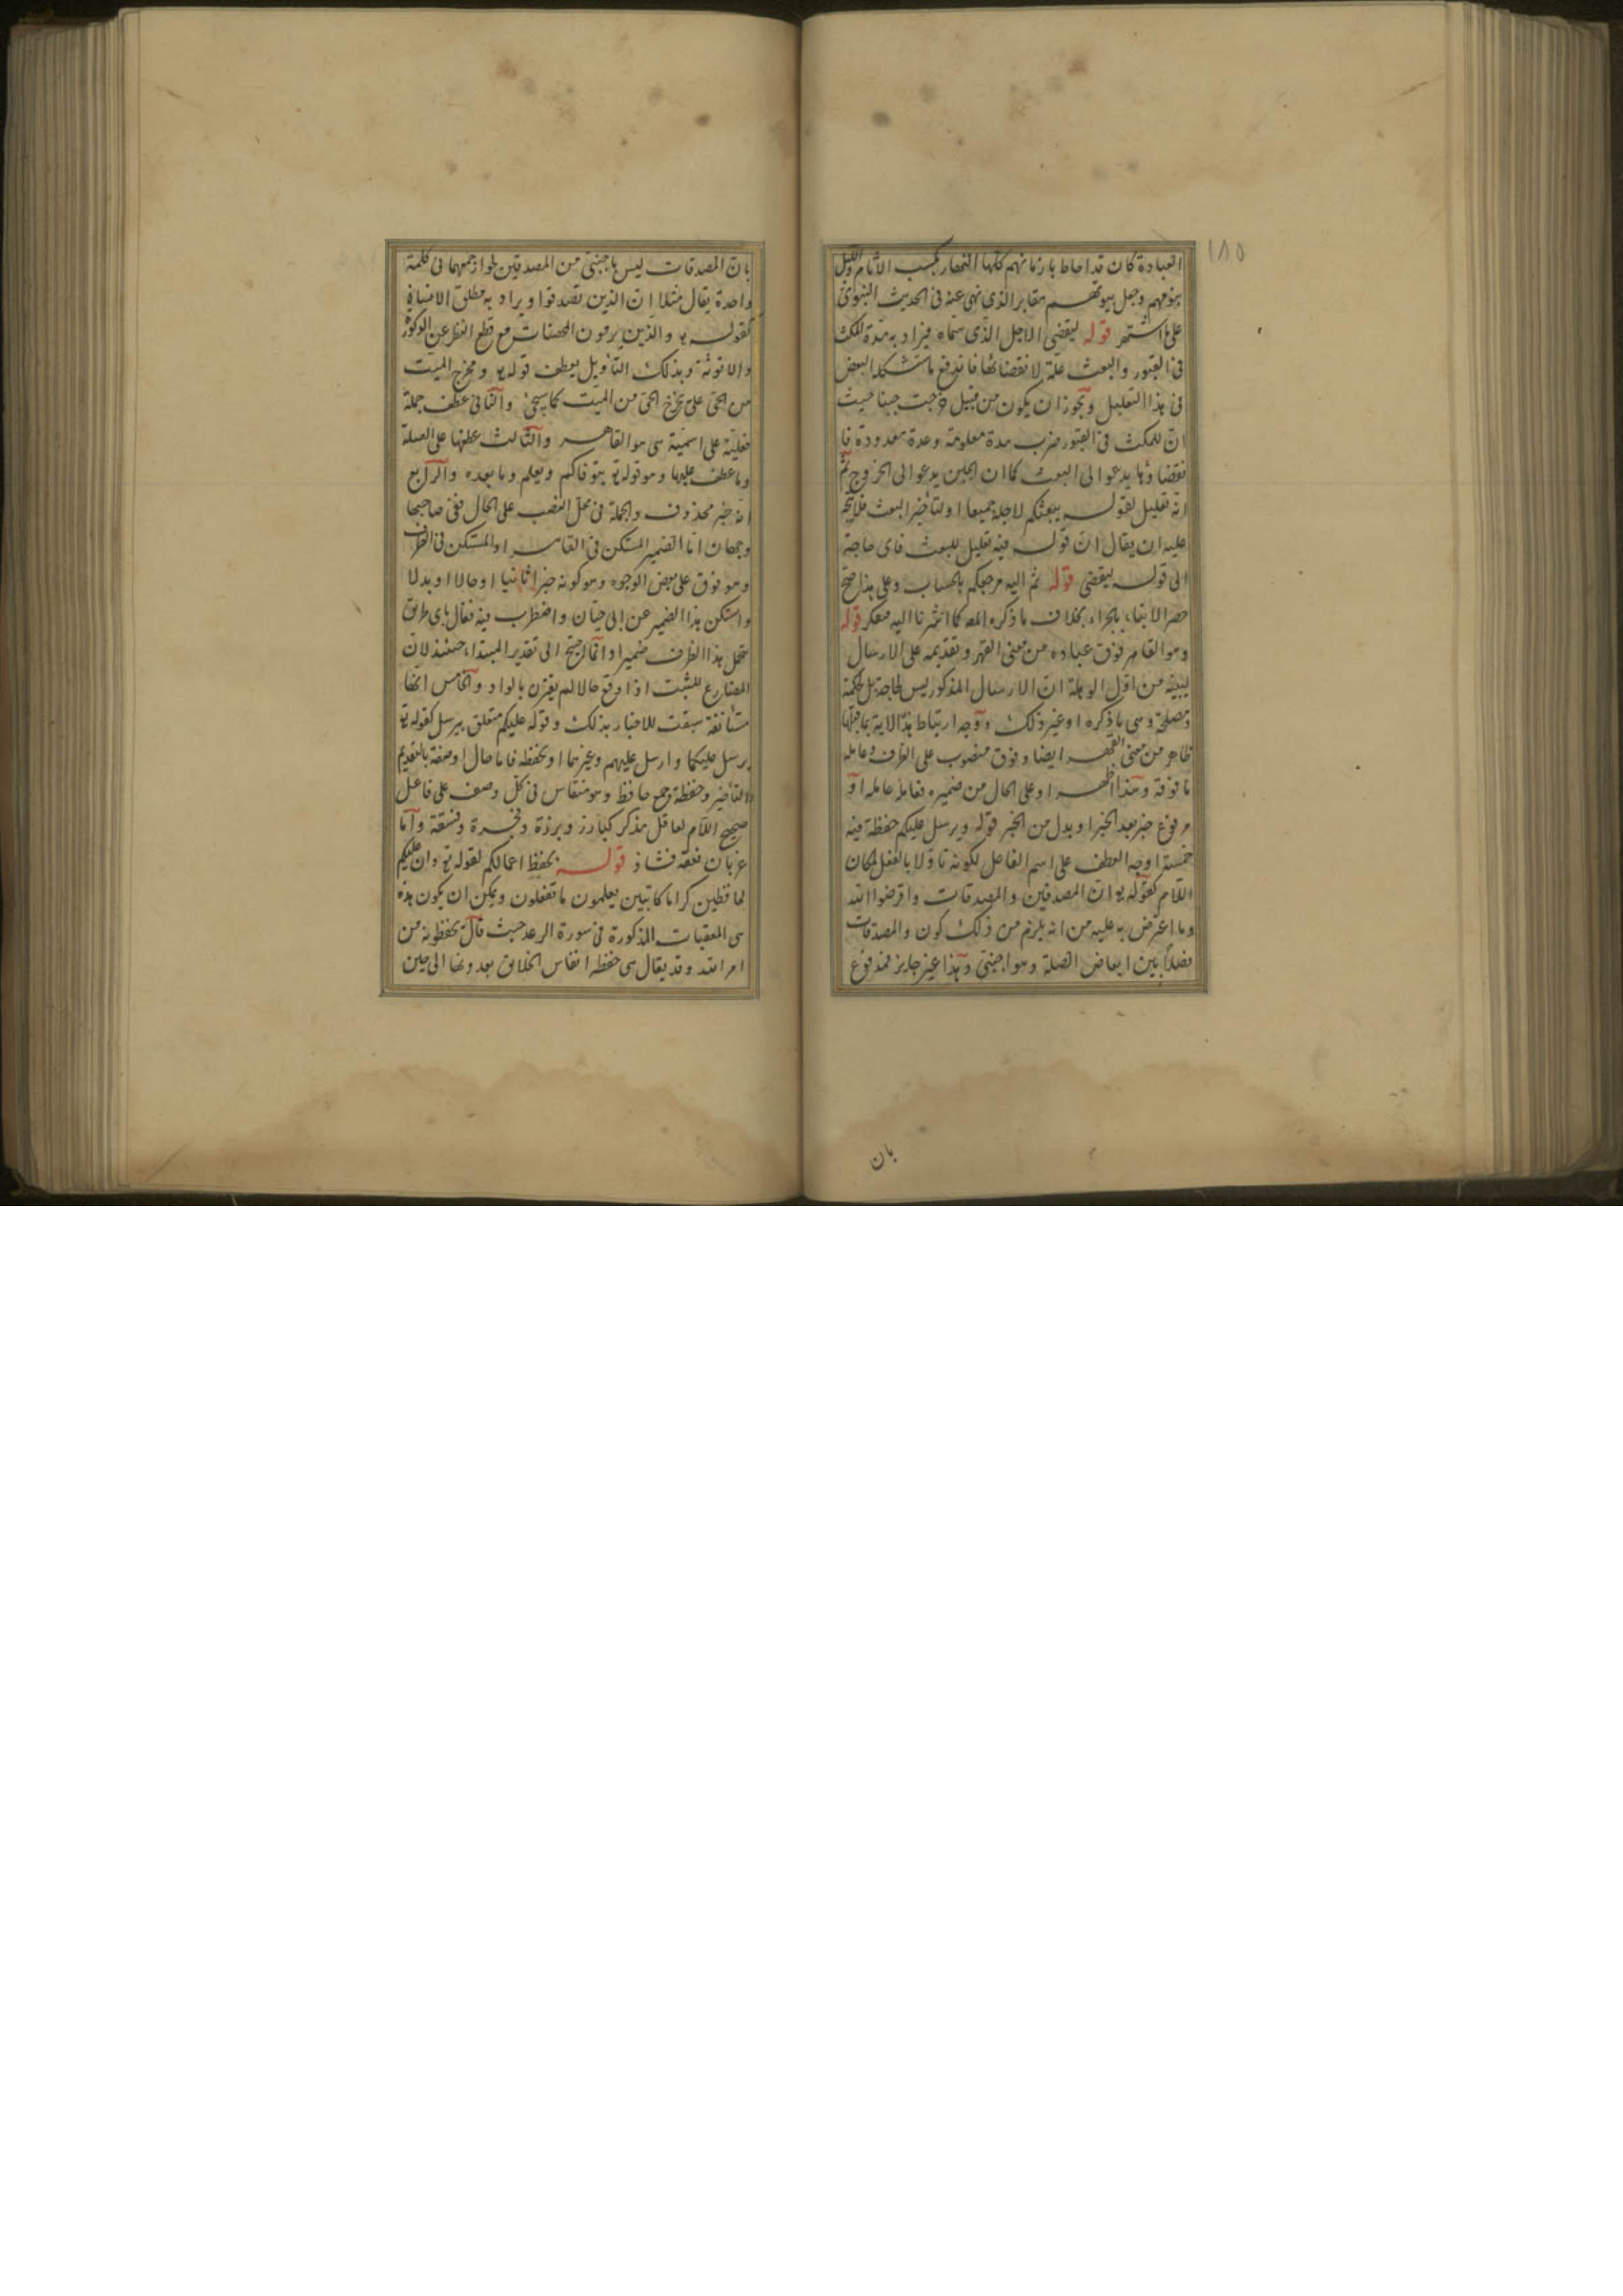 ١٨٥
العبادة كان قد احاط بازمانهم كلها النهار بكسب الآثام والليل
بنومهم وجعل بيوتهم مقابر الذي نهى عنه في الحديث النبوي
على ما اشتهر قوله ليقضى الاجل الذي سماه فيراد به مدة المكث
في القبور والبعث علة لانقضائها فاندفع ما استشكله البعض
في هذا التعليل ويجوز ان يكون من قبيل خرجت جبنا حيث
ان للمكث في القبور ضرب مدة معلومة وعدة معدودة فا
نقضاؤها يدعو الى البعث كما ان الجبن يدعو الى الخروج ثم
انه تعليل لقوله يبعثكم لاجله جميعا او لتأخير البعث فلا يتجه
عليه ان يقال ان قوله فيه تعليل للبعث فاى حاجة
الى قوله ليقضى قوله ثم اليه مرجعكم بالحساب وعلى هذا صح
حصر الانباء بالجزاء بخلاف ما ذكره المص كما اشرنا اليه قوله
وهو القاهر فوق عباده من معنى القهر وتقديمه على الارسال
ليبينه من اول الوهلة ان الارسال المذكور ليس لحاجة بل لحكمة
ومصلحة وهى ما ذكره او غير ذلك ووجه ارتباط هذه الآية بما قبلها
ظاهر من معنى القهر ايضا وفوق منصوب على الظرف وعامله
ما فوقه وهذا اظهر او على الحال من ضميره فعامله عامله او
مرفوع خبر بعد الخبر او بدل من الخبر قوله ويرسل عليكم حفظة فيه
خمسة اوجه العطف على اسم الفاعل لكونه تاولا بالفعل لمكان
اللام كقوله تع ان المصدقين والمصدقات واقرضوا الله
وما اعترض به عليه من انه يلزم من ذلك كون والمصدقات
فصلا بين ابعاض الصلة وهو اجنبى وهذا غير جايز فمدفوع
بان
بان المصدقات ليس باجنبى من المصدقين لجواز جمعهما في كلمة
واحدة يقال مثلا ان الذين تصدقوا ويراد به مطلق
كقوله تع والذين يرمون المحصنات مع قطع النظر عن الذكورة
والانوثة وبذلك التأويل يعطف قوله تع ومخرج الميت
من الحى على يخرج الحى من الميت كما سيجئ والثانى عطف جملة
فعلية على اسمية هى هو القاهر والثالث عطفها على الصلة
وما عطف عليها وهو قوله تع يتوفاكم ويعلم وما بعده والرابع
انه خبر محذوف والجملة في محل النصب على الحال ففى صاحبها
وجهان اما الضمير المستكن في القاهر او المستكن في الظرف
وهو فوق على بعض الوجوه وهو كونه خبرا ثانيا او حالا او بدلا
واستكن هذا الضمير عن ابى حيان واضطرب فيه فقال باى طريق
يتحمل هذا الظرف ضميرا وانما احتيج الى تقدير المبتداء حينئذ لان
المضارع المثبت اذا وقع حالا لم يقترن بالواو والخامس انها
مستأنفة سيقت للاخبار بذلك وقوله عليكم متعلق بيرسل كقوله تع
يرسل عليكما وارسل عليهم وغيرهما او بحفظة فاما حال او صفة بالتقديم
والتأخير وحفظة جمع حافظ وهو منقاس في كل وصف على فاعل
صحيح اللام لعاقل مذكر كبارز وبررة وفجرة وفسقة واما
غربان نعقة فشاذ قوله يحفظ اعمالكم لقوله تع وان عليكم
لحافظين كراما كاتبين يعلمون ما تفعلون ويمكن ان يكون هذه
هى المعقبات المذكورة في سورة الرعد حيث قال يحفظونه من
امر الله وقد يقال هى حفظة انفاس الخلائق يعدونها الى حين